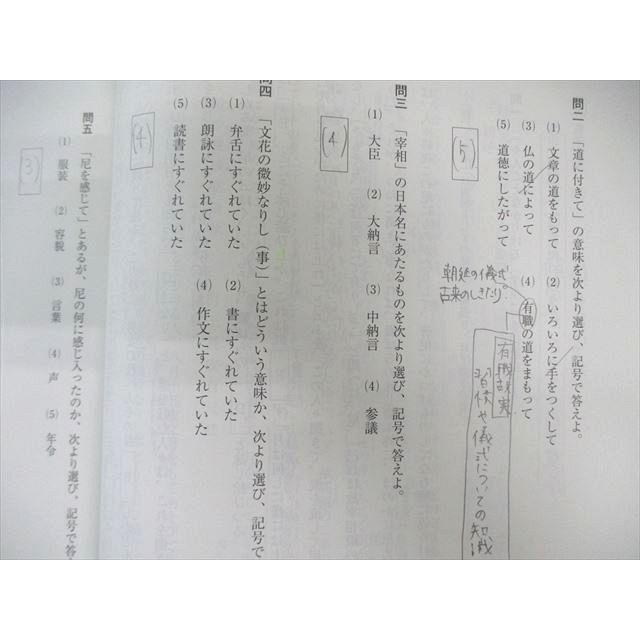 問二 「道に付きて」の意味を次より選び、記号で答えよ。
(1) 文章の道をもって (2) いろいろに手をつくして
(3) 仏の道によって (4) 有職の道をまもって
(5) 道徳にしたがって
(5)
朝廷の儀式
古来のしきたり。
有職故実
習慣や儀式についての知識
問三 「宰相」の日本名にあたるものを次より選び、記号で答えよ。
(1) 大臣 (2) 大納言 (3) 中納言 (4) 参議
(4)
問四 「文花の微妙なりし(事)」とはどういう意味か、次より選び、記号で
(1) 弁舌にすぐれていた (2) 書にすぐれていた
(3) 朗詠にすぐれていた (4) 作文にすぐれていた
(5) 読書にすぐれていた
(4)
問五 「尼を感じて」とあるが、尼の何に感じ入ったのか、次より選び、記号で答
(1) 服装 (2) 容貌 (3) 言葉 (4) 声 (5) 年令
(3)